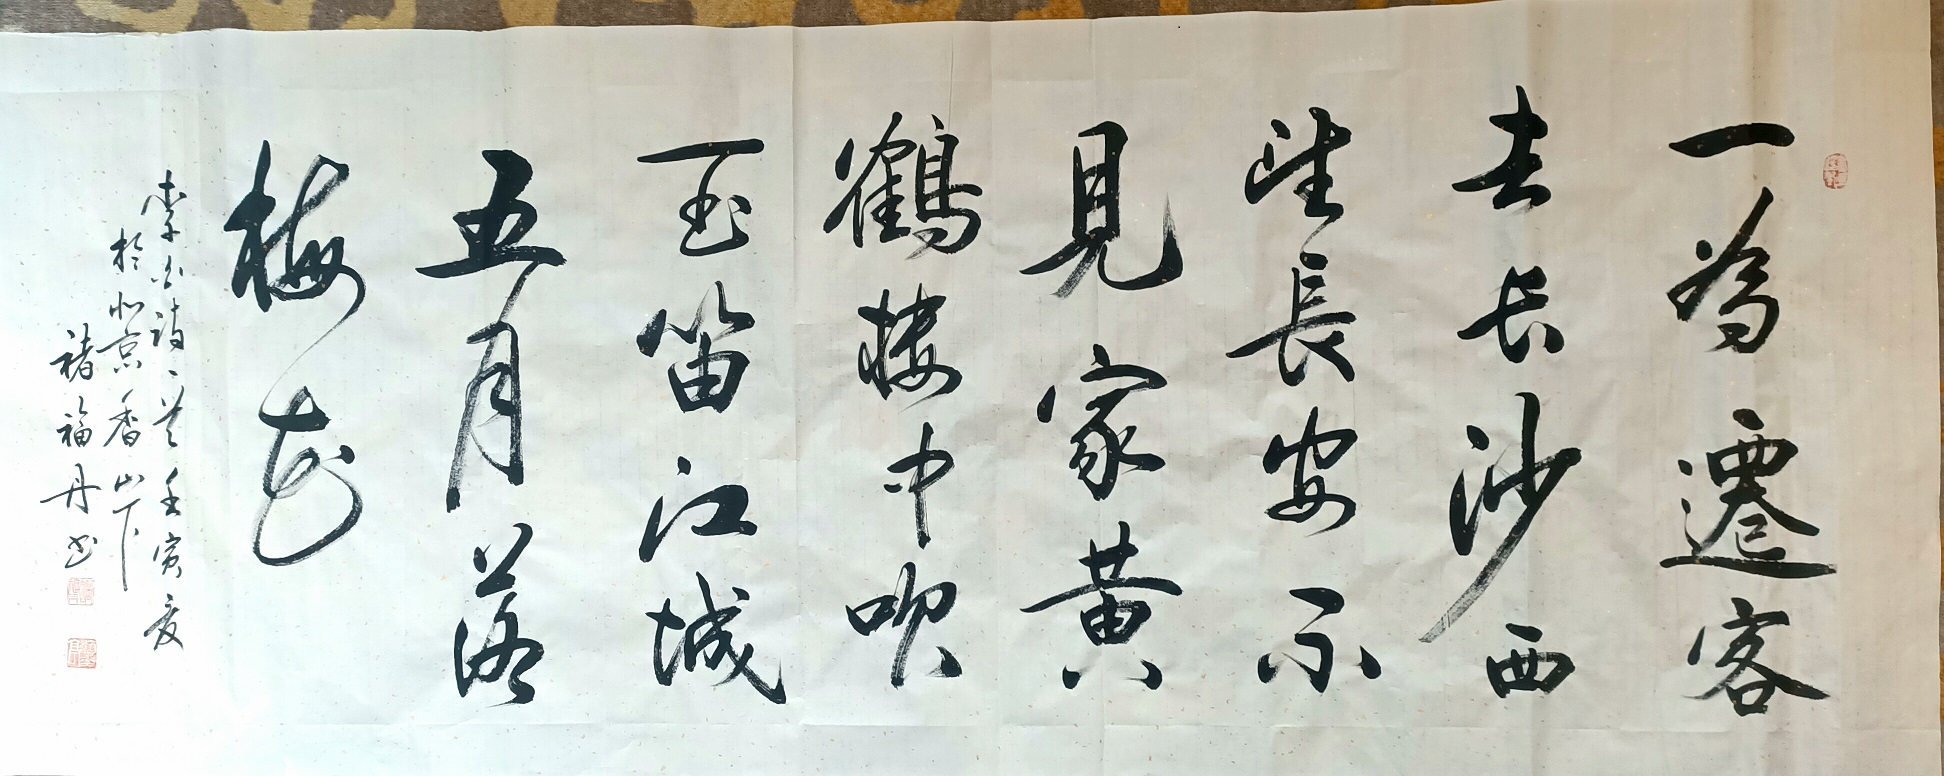 一為遷客
去长沙西
望長安不
見家黄
鶴楼中吹
一玉笛江城
五月落
梅花
李白詩一首壬寅夏
於北京香山下
褚福丹书